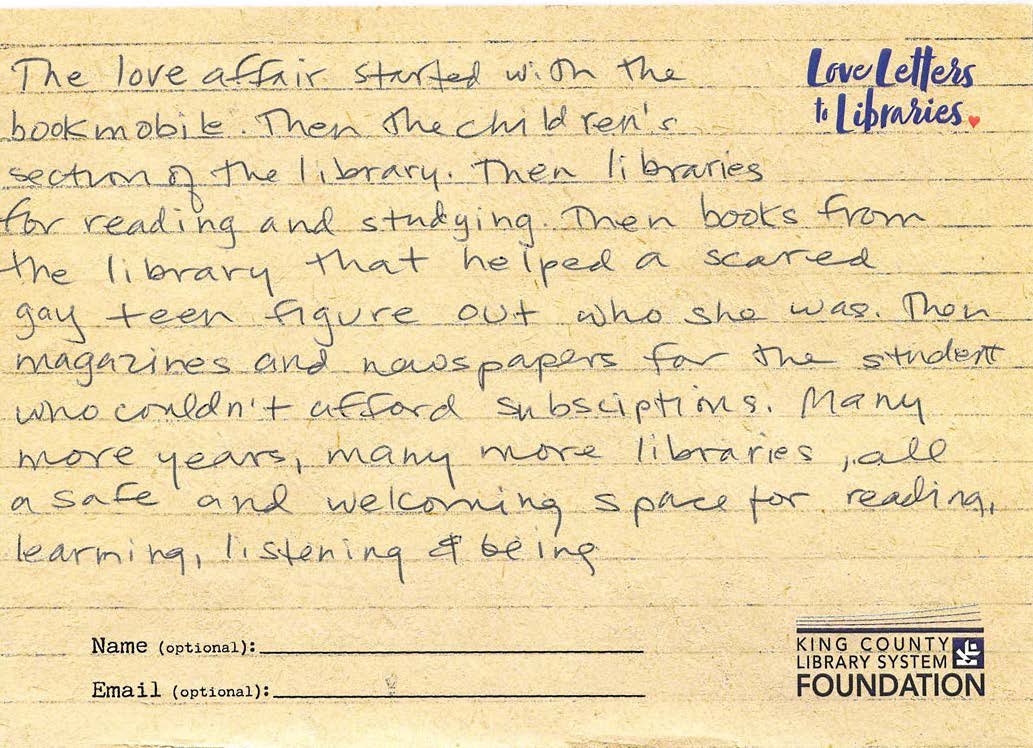 Love Letters
to Libraries.
The love affair started with the
bookmobile. Then the children's
section of the library. Then libraries
for reading and studying. Then books from
the library that helped a scared
gay teen figure out who she was. Then
magazines and newspapers for the student
who couldn't afford subsciptions. Many
more years, many more libraries, all
a safe and welcoming space for reading,
learning, listening & being
Name (optional):
Email (optional):
KING COUNTY
LIBRARY SYSTEM
FOUNDATION